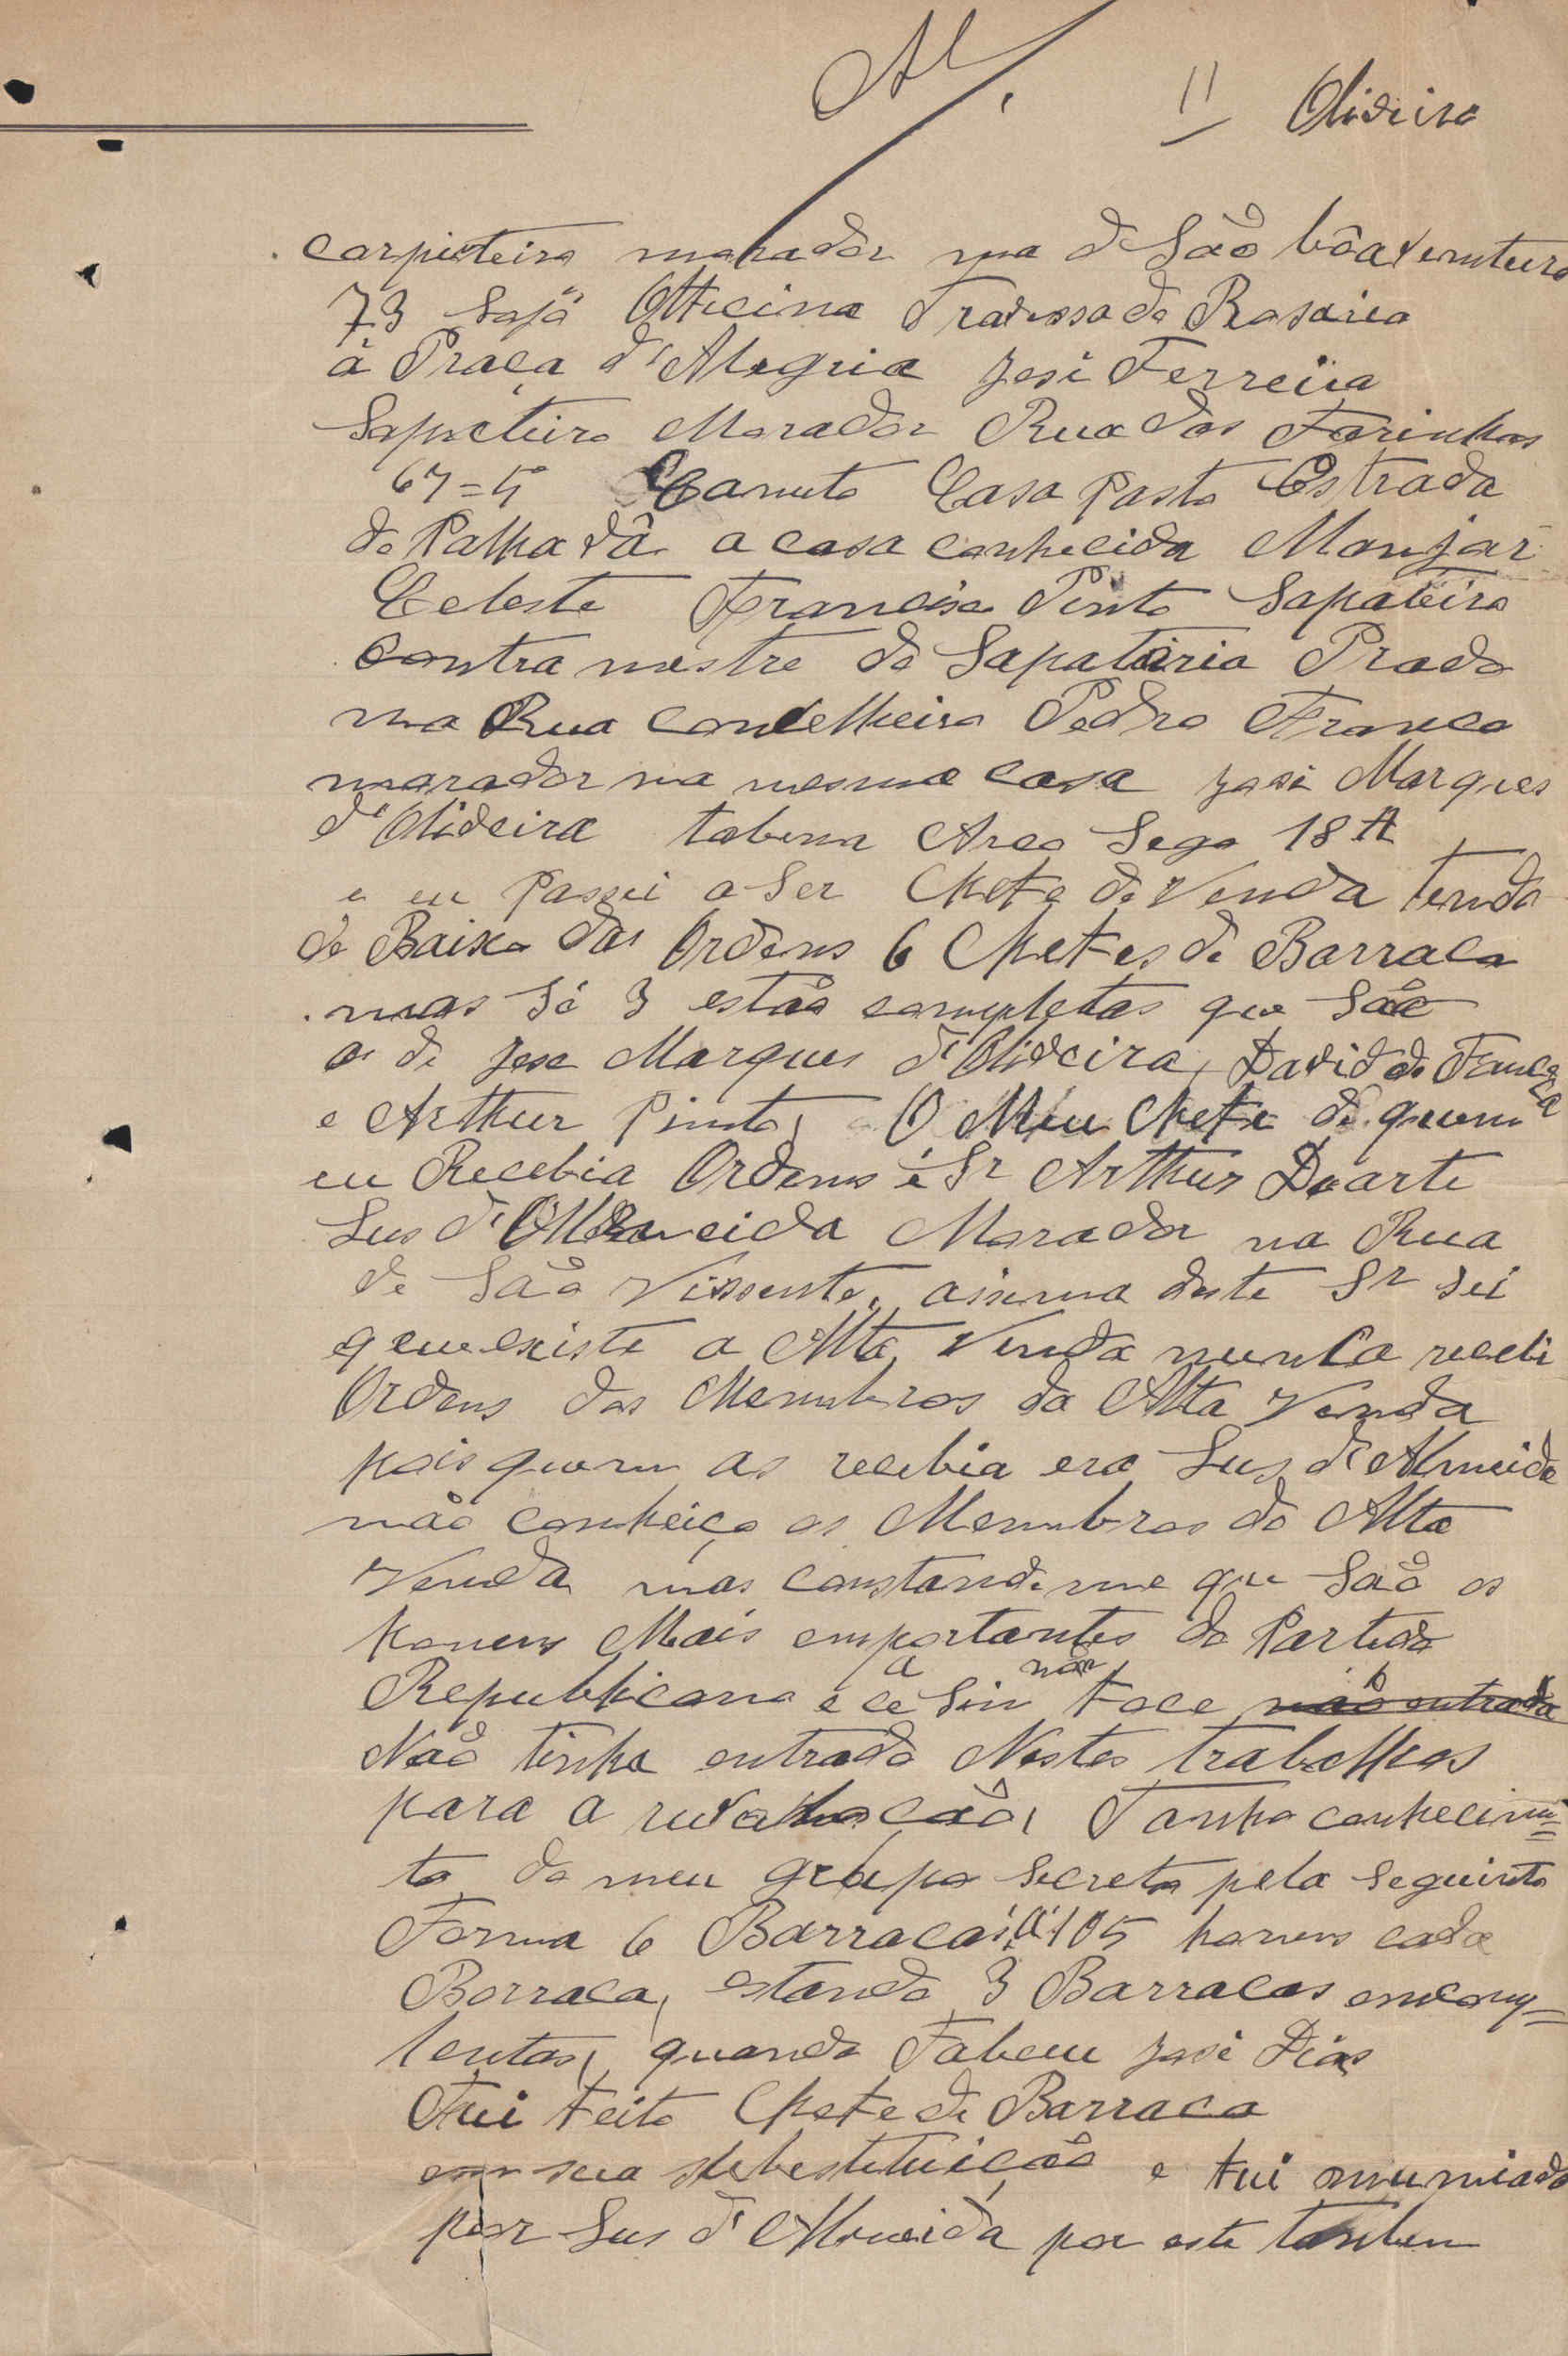 11 Olideira
carpinteiro morador rua de São bôaventura
73 Officina Travessa do Rosario
á Praça d'Alegria José Ferreira
Sapateiro Morador Rua das Farinhas
67=5º Canuto Casa Pasto Estrada
de Palhavã a casa conhecida Manjar
Celeste Francisco Pinto Sapateiro
contra mestre da Sapataria Prado
na Rua Concelheiro Pedro Franco
morador na mesma casa José Marques
d'Olideira taberna Arco Sego 18A
e eu passei a Ser Chefe de Venda tendo
de Baixo das Ordens 6 Chefes de Barraca
mas Só 3 estão completas que são
as de Jose Marques d'Olideira, David da Fonceca
e Arthur Pinto, O Meu Chefe de quem
eu Recebia Ordens é Sr Arthur Duarte
Lus d'Almeida Morador na Rua
de São Vissente, assima deste Sr sei
que existe a Alta Venda nunca recebi
Ordens dos Membros da Alta Venda
pois quem as recebia era Lus d'Almeida
não conheiço os Membros da Alta
Venda mas constandeme que São os
homens Mais emportantes do Partido
Republicano e ce a sin não foce não entrado
Não tinha entrado Nestes trabalhos
para a revolucão, Tanho conhecimen=
to do meu grupo secreto pela seguinte
Forma 6 Barracas a 105 homens cada
Barraca, estando 3 Barracas encomp=
lentas, quando Fabeu José Dias
Fui Feito Chefe de Barraca
em sua substituição e fui
por Lus d'Almeida por este tanben